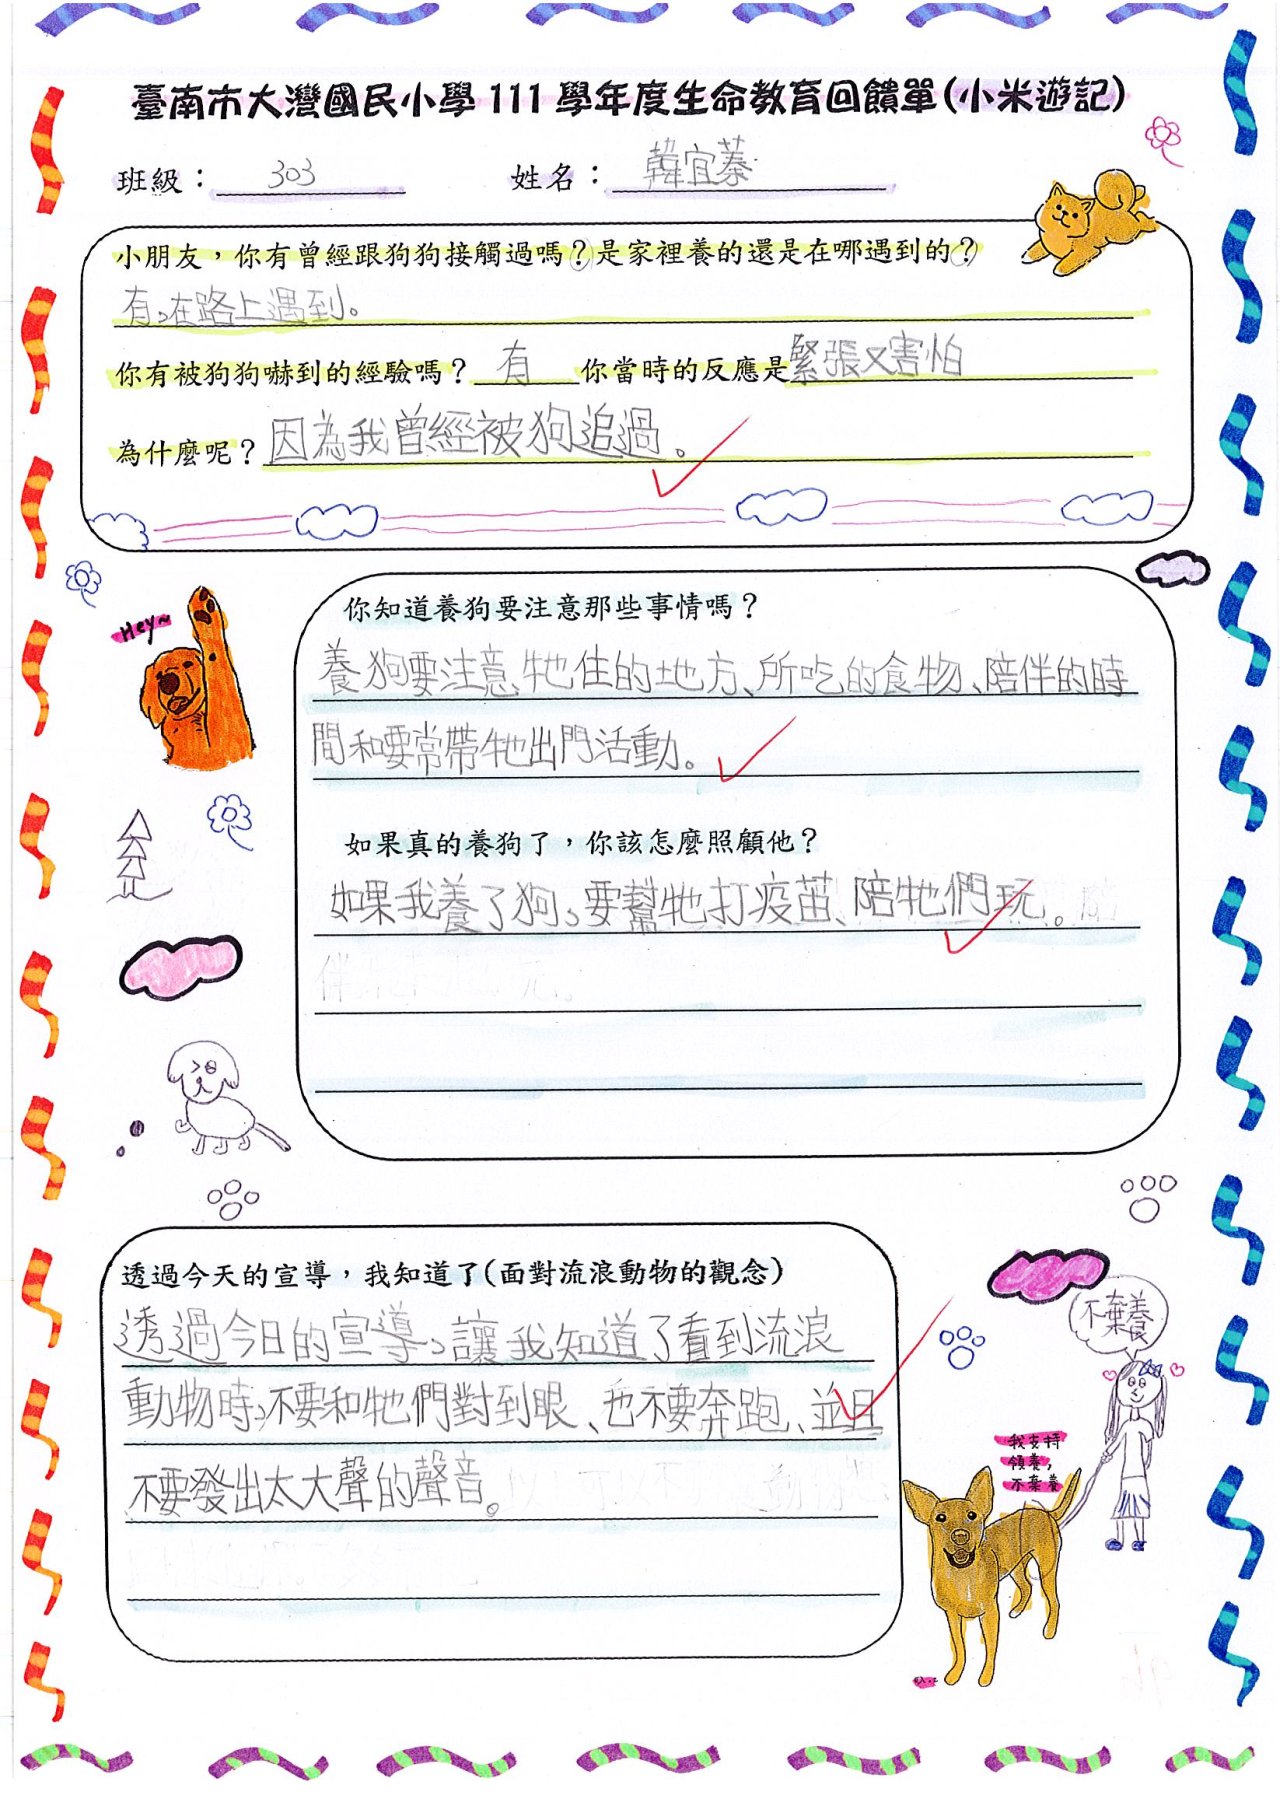 臺南市大灣國民小學111學年度生命教育回饋單(小米遊記)
班級：303 姓名：韓宜蓁
小朋友，你有曾經跟狗狗接觸過嗎？是家裡養的還是在哪遇到的？
有，在路上遇到。
你有被狗狗嚇到的經驗嗎？有 你當時的反應是緊張又害怕
為什麼呢？因為我曾經被狗追過。
Hey~
你知道養狗要注意那些事情嗎？
養狗要注意牠住的地方、所吃的食物、陪伴的時
間和要常帶牠出門活動。
如果真的養狗了，你該怎麼照顧他？
如果我養了狗，要幫牠打疫苗、陪牠們玩。
透過今天的宣導，我知道了(面對流浪動物的觀念)
透過今日的宣導，讓我知道了看到流浪
動物時，不要和牠們對到眼、也不要奔跑、並且
不要發出太大聲的聲音。
不棄養
我支持
領養，
不棄養